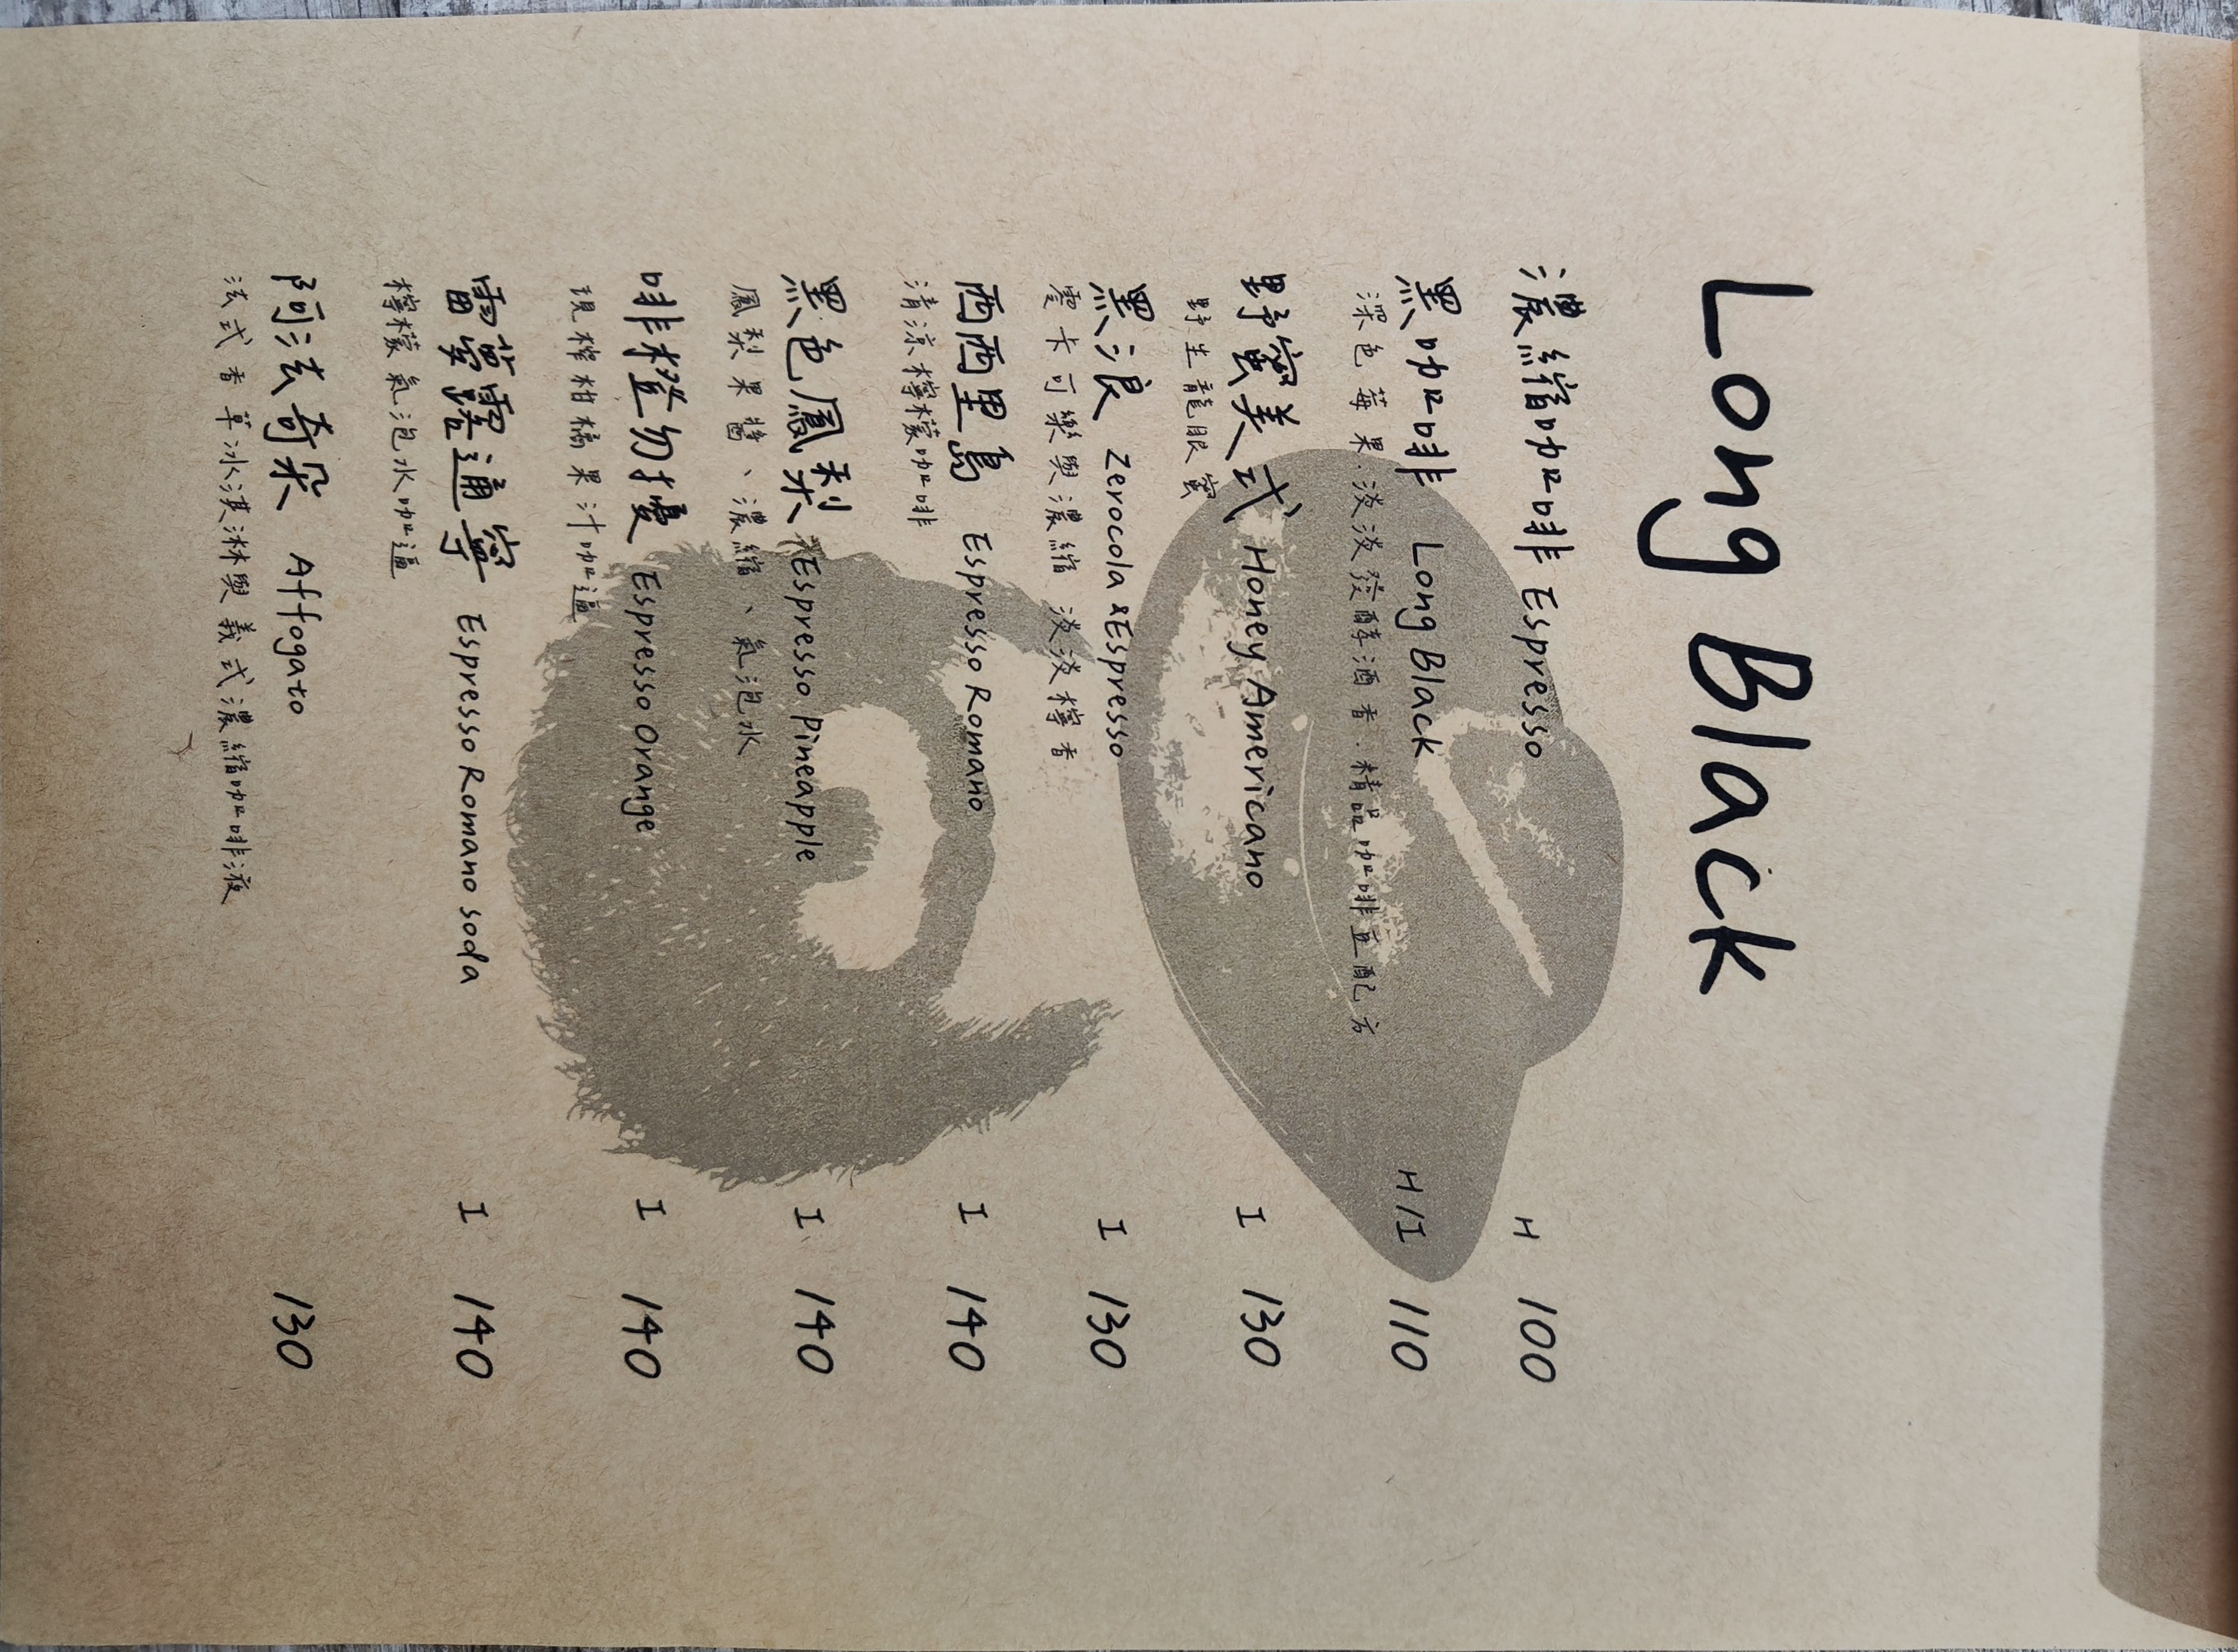 Long Black
濃縮咖啡 Espresso H 100
黑咖啡 Long Black H/I 110
深色莓果.淡淡發酵酒香.精品咖啡豆配方
野蜜美式 Honey Americano I 130
野生龍眼蜜
黑浪 Zerocola x Espresso I 130
零卡可樂與濃縮 淡淡檸香
西西里島 Espresso Romano I 140
清涼檸檬咖啡
黑色鳳梨 Espresso Pineapple I 140
鳳梨果醬、濃縮、氣泡水
啡橙勿擾 Espresso Orange I 140
現榨柑橘果汁咖逼
雷蒙露通寧 Espresso Romano soda I 140
檸檬氣泡水咖逼
阿法奇朵 Affogato 130
法式香草冰淇淋與義式濃縮咖啡液